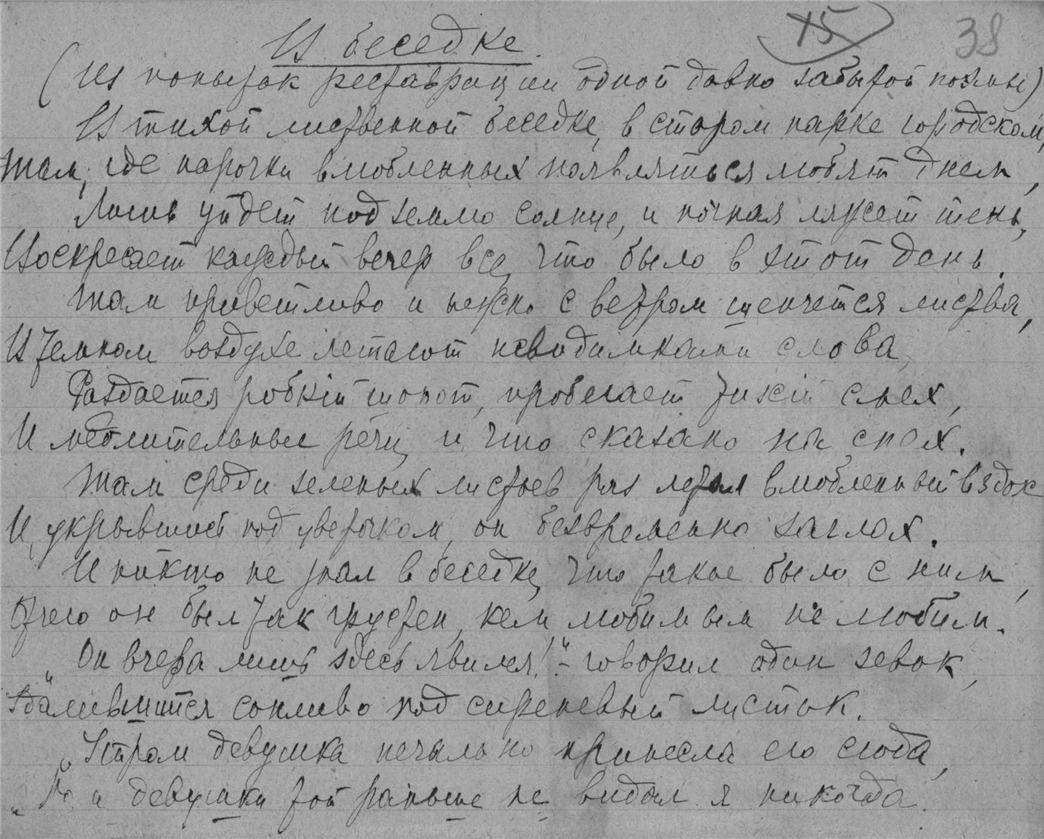 15 38
В беседке.
(Из попыток реставрации одной давно забытой поэмы)
В тихой лиственной беседке, в старом парке городском,
Там, где парочки влюбленных появляться любят днем,
Лишь уйдет под землю солнце, и ночная ляжет тень,
Воскресает каждый вечер все, что было в этот день.
Там приветливо и нежно с ветром шепчется листва,
В темном воздухе летают невидимками слова,
Раздается робкий шопот, пробегает тихий смех,
И медлительные речи, и что сказано на спех.
Там среди зеленых листьев раз летал влюбленный вздох
И, укрывшись под цветочком, он безвременно заглох.
И никто не знал в беседке, что такое было с ним,
Отчего он был так грустен, кем любимым не любим.
"Он вчера лишь здесь явился!" - говорил один зевок,
сонливо под сиреневый листок.
"Утром девушка печально принесла его сюда,
"Но и девушки той раньше не видал я никогда.